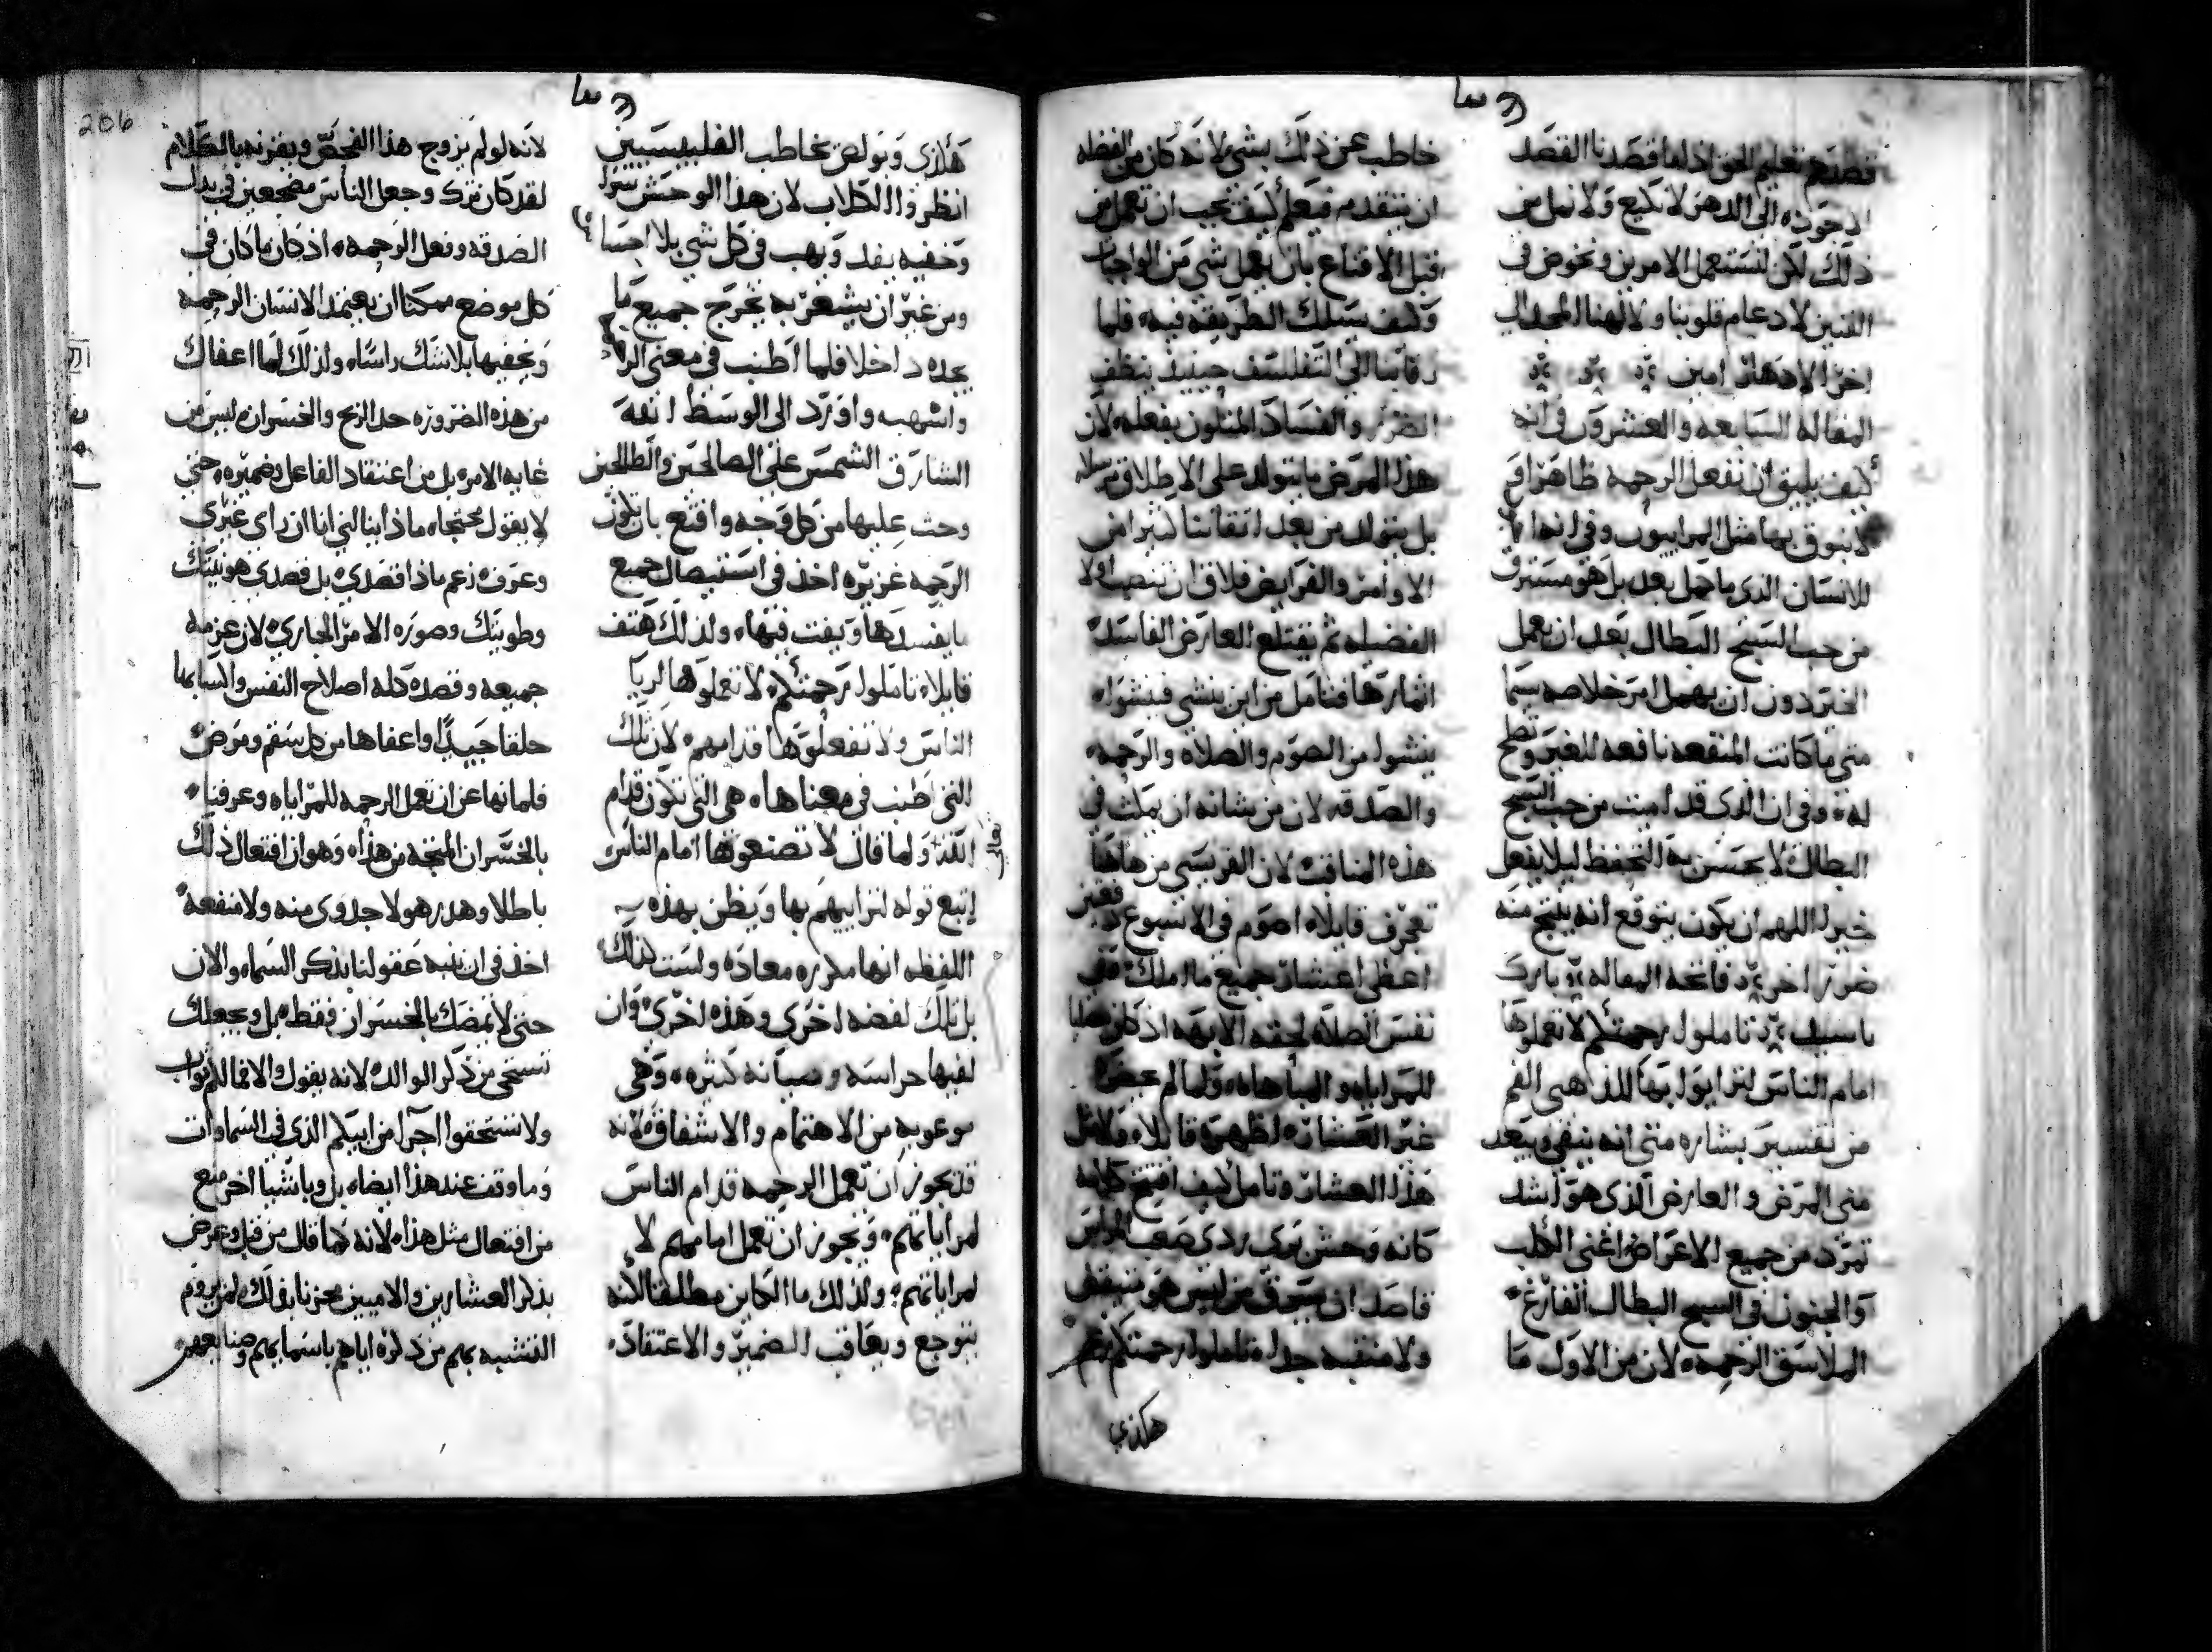 الاجوده الى الدهر لا نكيع ولا نمل من
ذلك لكن لنستعمل الامرين ونخوض في
الفنين لادعام قلوبنا ولالهنا المجد الى
اخر الادهار امين
المقاله السابعه والعشرون في انه
كيف يليق ان نفعل الرحمه ظاهرا و
لا نبوق بها مثل المراييون وفي انها
للانسان الذي ما حمل بعد بل هو مسترق
من حب السبح البطال بعد ان يعمل
الخير دون ان يهمل امر خلاصه سيما
متى ما كانت المنفعه نافعه للغير وتصلح
له وفي ان الذي قد امنت من حب السبح
البطال لا يحسن به التحفظ ليلا يفعل
خيرا اللهم ان يكون يتوقع انه ينتج منه
ضررا اخر فاتحه المقاله بارك
ياسيد تاملوا رحمتكم لا تعملوها
امام الناس لترايوا بها للذاهبي الفم
من تفسير بشاره متى انه ينفي ويبعد
متى المرض والعارض الذي هو اشد
تمرد من جميع الاعراض اعني الكلب
والجنون في السبح البطال الفارغ
الملاسق الرحمه لان من الاول ما
خاطب عن ذلك بشي لانه كان من الفظله
ان يتقدم فيعلم كيف يجب ان تعمل من
قبل الاقناع بان يعمل شي من الواجبات
وكيف يسلك الطريقه فيه فلما
رقانا الى التفلسف حينيذ ينظف
الضرر والفساد المتلون بفعله لان
هذا المرض ما يتولد على الاطلاق
بل يتولد من بعد اتقاننا كثيرا من
الاوامر والفرايض فلاق ان ينصب اولا
الفضيله ثم يقتلع العارض الفاسد
اثمارها فتامل من اين ينشي فينشواه
ينشوا من الصوم والصلاه والرحمه
والصدقه لان من شانه ان يملث في
هذه المناقب لان الفريسي من هاهنا
تعجرف قايلا اصوم في الاسبوع دفعتين
اعطي اعشار جميع ما املك وفي
نفس الصلاه لحقه الابهه اذ كان
للمراياه والمباهاه ولما لم يحضره
غير العشار اظهره قايلا ولا مثل
هذا العشار وتامل كيف افتتح كلامه
كانه وحش بري ردي صعب المراس
قاصد ان يخوف من ليس هو متيقظ
ولا منتبه جدا تاملوا رحمتكم زعم
هكذي
هكذي وبولص يخاطب الفليبسيين
انظروا الكلاب لان هذا الوحش سرا
وخفيه يفد ويهب في كل شي بلا احساس
ومن غير ان يشعر به يخرج جميع ما
يجده داخلا فلما اطنب في معنى الرحمه
واسهب واورد الى الوسط الله
الشارق الشمس على الصالحين والطالحين
وحث عليها من كل وجه واقنع بان تكون
الرحمه غزيره اخذ في استيصال جميع
ما يفسدها ويفت فيها ولذلك هتف
قايلا تاملوا رحمتكم لا تعملوها لريا
الناس ولا تفعلوها قدامهم لان تلك
التي اطنب في معناها هي التي تكون قدام
الله ولما قال لا تصنعوها امام الناس
اتبع قوله لتراييهم بها ويظن بهذه
اللفظه انها مكرره معاده وليست كذلك
بل تلك لفضه اخرى وهذه اخرى وان
لفيها حراسه وصيانه كثيره وهي
موعوبه من الاهتمام والاشفاق لانه
قد يجوز ان تعمل الرحمه قدام الناس
لمراياتهم ويجوز ان تعمل امامهم لا
لمراياتهم ولذلك ما الكاين مطلقا لانه
يتوجع ويعاقب الضمير والاعتقاد
لانه لو لم يزوج هذا الفحص ويقرنه بالكلام
لقد كان ترك وجعل الناس مضجعين في بذل
الصدقه وفعل الرحمه اذ كان ما كان في
كل موضع ممكنا ان يعتمد الانسان الرحمه
ويخفيها بلا شك راسا ولذلك لما اعفاك
من هذه الضروره حد الربح والخسران ليس من
غايه الامر بل من اعتقاد الفاعل وضميره حتى
لا يقول محتجا ماذا ينالني انا ان راى غيري
وعرف زعم ماذا قصدي بل قصدي هو نيتك
وطويتك وصوره الامر الجاري لان عزمه
جميعه وقصده كله اصلاح النفس واكسابها
خلقا جيدا واعفاها من كل سقم ومرض
فلما نها عن ان تعمل الرحمه للمراياه وعرفنا
بالخسران المنتجه من هذا وهو ان افتعال ذلك
باطلا وهدر هو لا جدوى منه ولا منفعه
اخذ في ان ينبه عقولنا بذكر السما والاب
حتى لا يمضك بالخسران فقط بل ويجعلك
تستحي من ذكر الوالد لانه يقول والا فما لكم ثواب
ولا تستحقوا اجرا من ابيكم الذي في السماوات
وما وقف عند هذا ايضا بل وباشيا اخر منع
من افتعال مثل هذا لانه كما قال من قبل وعرض
بذكر العشارين والامميين مخزيا بذلك لمن يروم
التشبه بهم من ذكره اياهم باسمايهم وصنايعهم